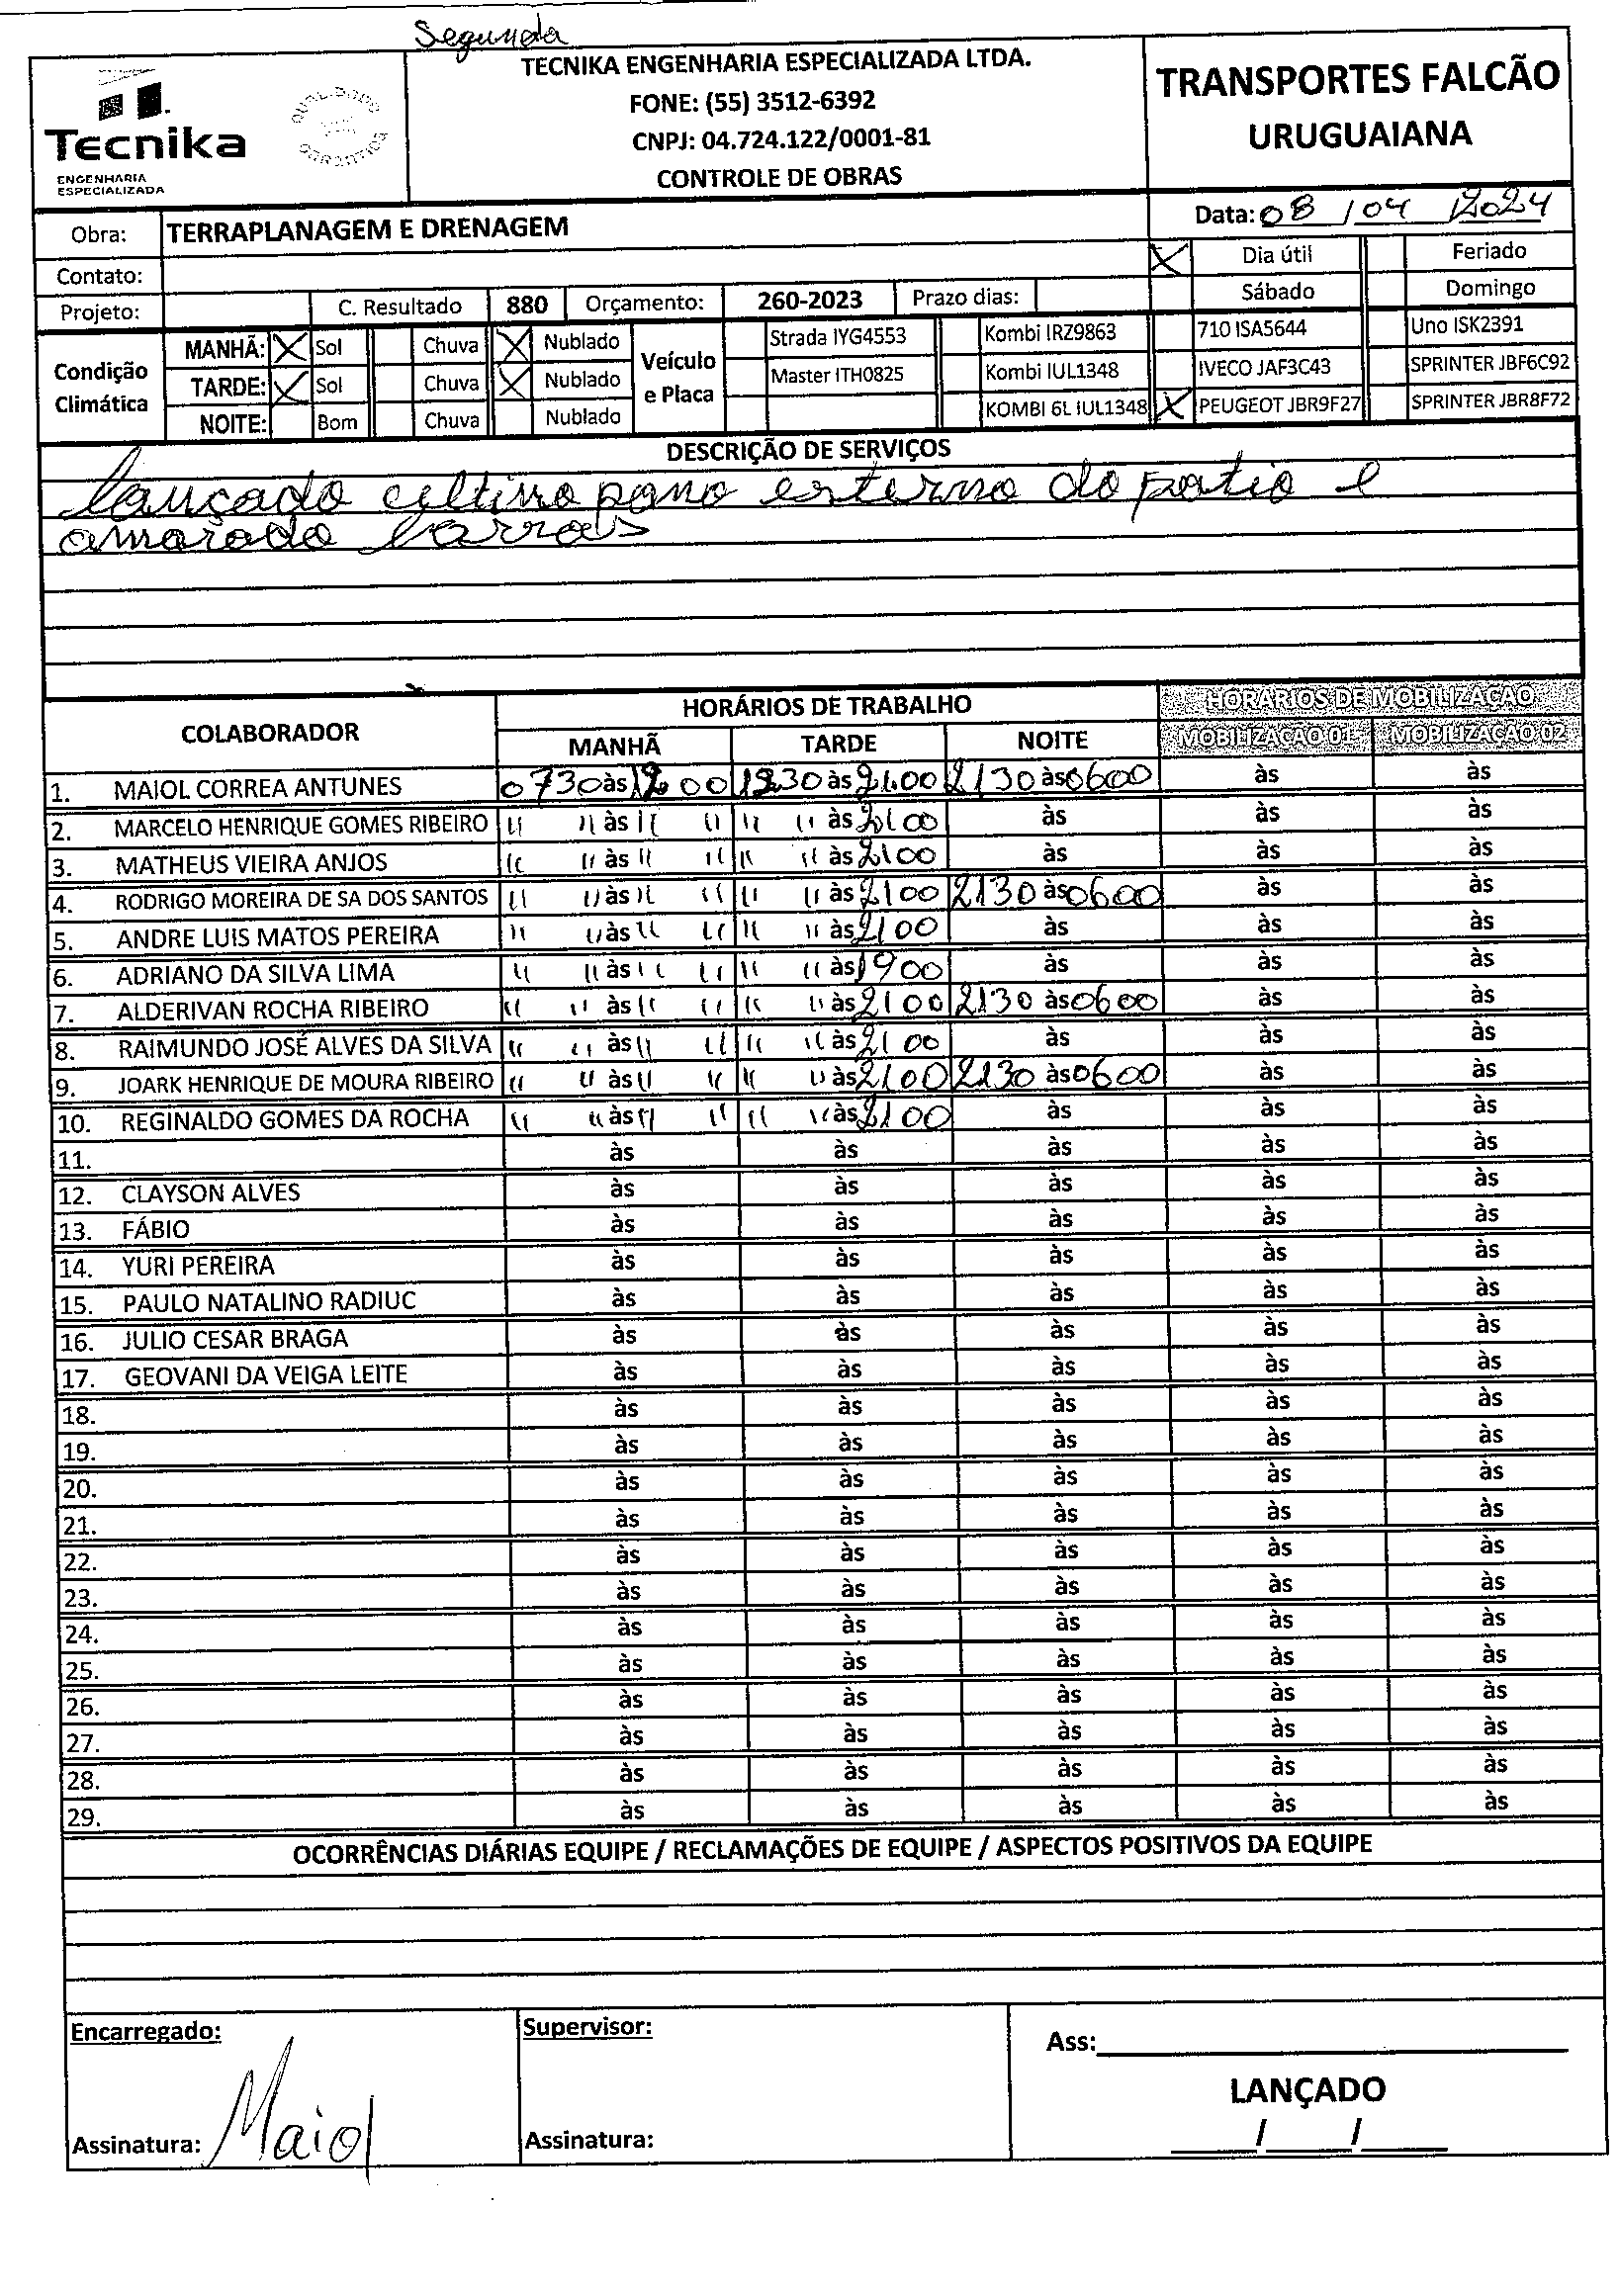 Segunda
Tecnika
ENGENHARIA
ESPECIALIZADA
TECNIKA ENGENHARIA ESPECIALIZADA LTDA.
FONE: (55) 3512-6392
CNPJ: 04.724.122/0001-81
CONTROLE DE OBRAS
TRANSPORTES FALCÃO
URUGUAIANA
Data: 08 / 04 / 2024
Obra: TERRAPLANAGEM E DRENAGEM
Contato:
X Dia útil Feriado
Sábado Domingo
Projeto: C. Resultado 880 Orçamento: 260-2023 Prazo dias:
Condição Climática
MANHÃ: X Sol Chuva X Nublado
TARDE: X Sol Chuva X Nublado
NOITE: Bom Chuva Nublado
Veículo e Placa
Strada IYG4553 Kombi IRZ9863 710 ISA5644 Uno ISK2391
Master ITH0825 Kombi IUL1348 IVECO JAF3C43 SPRINTER JBF6C92
KOMBI 6L IUL1348 X PEUGEOT JBR9F27 SPRINTER JBR8F72
DESCRIÇÃO DE SERVIÇOS
lançado ultimo pano esterno do patio e
amarado barras
COLABORADOR HORÁRIOS DE TRABALHO HORÁRIOS DE MOBILIZAÇÃO
MANHÃ TARDE NOITE MOBILIZAÇÃO 01 MOBILIZAÇÃO 02
1. MAIOL CORREA ANTUNES 0730 às 1200 1230 às 2100 2130 às 0600 às às
2. MARCELO HENRIQUE GOMES RIBEIRO " " às " " " " às 2100 às às às
3. MATHEUS VIEIRA ANJOS " " às " " " " às 2100 às às às
4. RODRIGO MOREIRA DE SA DOS SANTOS " " às " " " " às 2100 2130 às 0600 às às
5. ANDRE LUIS MATOS PEREIRA " " às " " " " às 2100 às às às
6. ADRIANO DA SILVA LIMA " " às " " " " às 1900 às às às
7. ALDERIVAN ROCHA RIBEIRO " " às " " " " às 2100 2130 às 0600 às às
8. RAIMUNDO JOSÉ ALVES DA SILVA " " às " " " " às 2100 às às às
9. JOARK HENRIQUE DE MOURA RIBEIRO " " às " " " " às 2100 2130 às 0600 às às
10. REGINALDO GOMES DA ROCHA " " às " " " " às 2100 às às às
11. às às às às às
12. CLAYSON ALVES às às às às às
13. FÁBIO às às às às às
14. YURI PEREIRA às às às às às
15. PAULO NATALINO RADIUC às às às às às
16. JULIO CESAR BRAGA às às às às às
17. GEOVANI DA VEIGA LEITE às às às às às
18. às às às às às
19. às às às às às
20. às às às às às
21. às às às às às
22. às às às às às
23. às às às às às
24. às às às às às
25. às às às às às
26. às às às às às
27. às às às às às
28. às às às às às
29. às às às às às
OCORRÊNCIAS DIÁRIAS EQUIPE / RECLAMAÇÕES DE EQUIPE / ASPECTOS POSITIVOS DA EQUIPE
Encarregado: Supervisor: Ass:
LANÇADO
Assinatura: Maiol Assinatura: / /